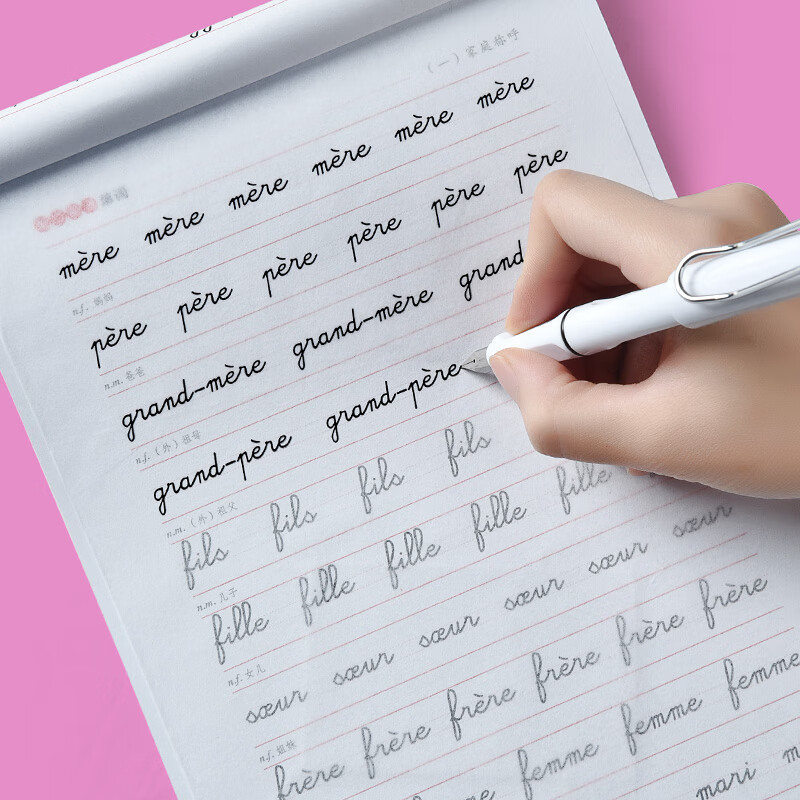 （一）家庭称呼
单词
mère mère mère mère mère mère
n.f. 妈妈
père père père père père père
n.m. 爸爸
grand-mère grand-mère grand
n.f.（外）祖母
grand-père grand-père
n.m.（外）祖父
fils fils fils fils
n.m. 儿子
fille fille fille fille fille
n.f. 女儿
sœur sœur sœur sœur sœur sœur
n.f. 姐妹
frère frère frère frère frère frère
femme femme femme femme
mari